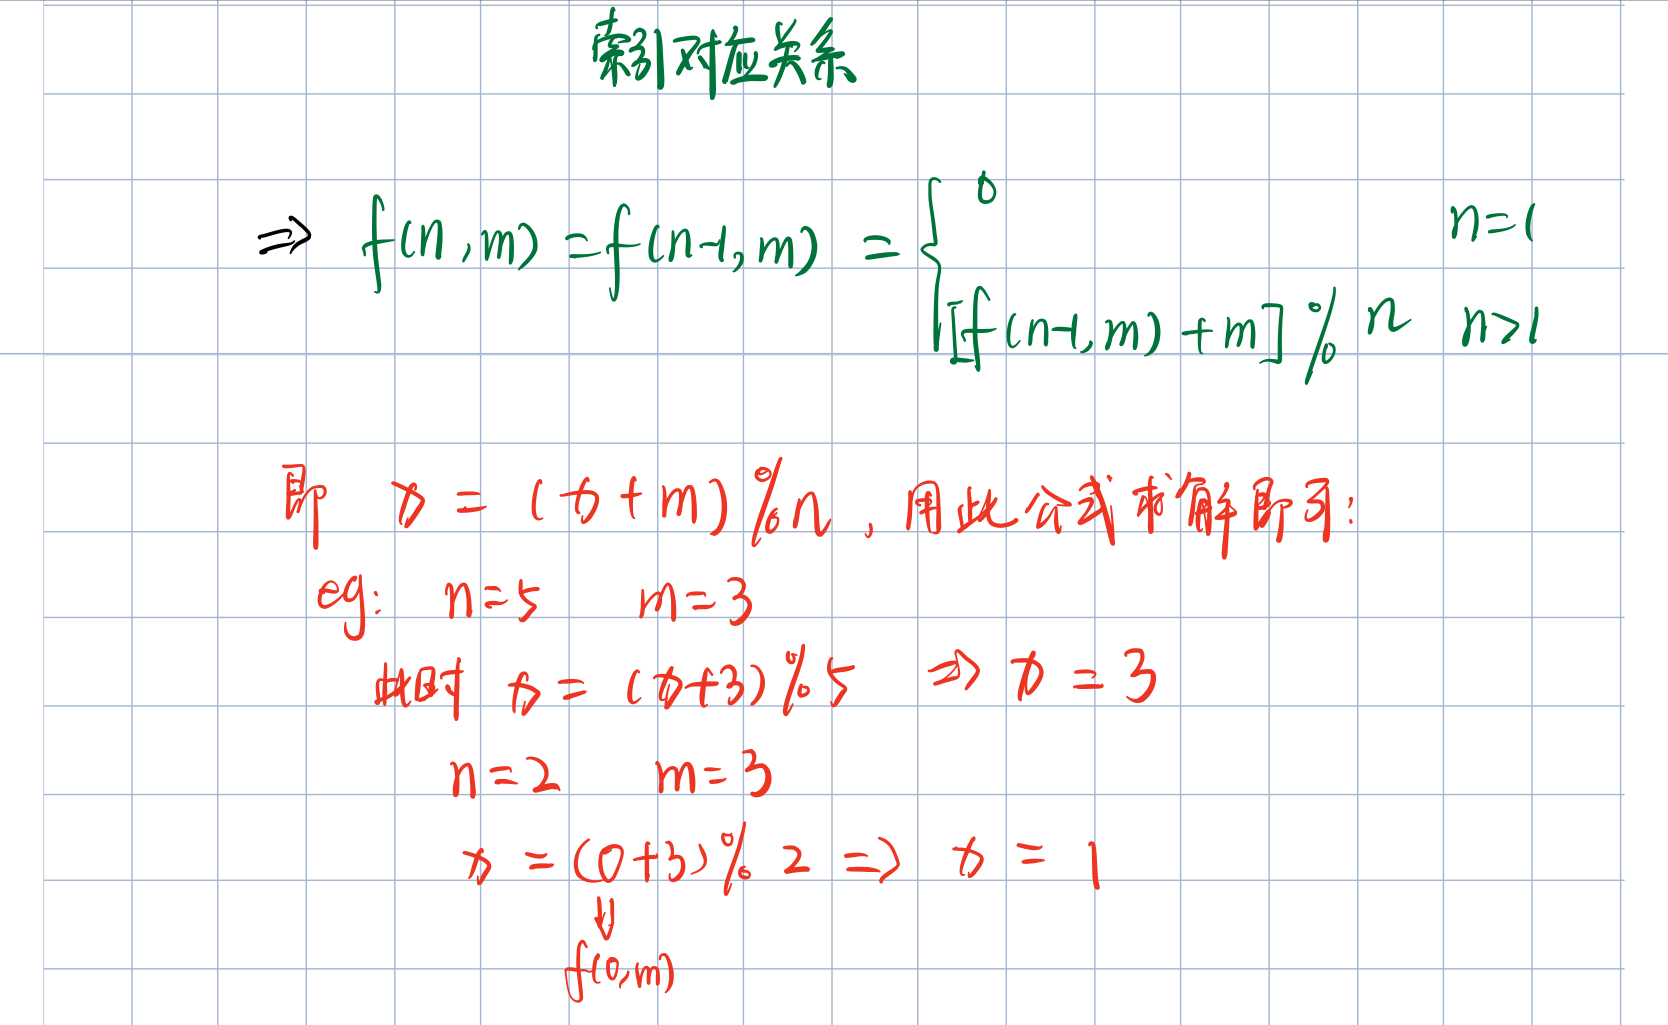 索引对应关系
⇒ f(n,m) = f(n-1,m) = { 0 n=1
[f(n-1,m)+m]%n n>1
即 x = (x+m)%n,用此公式求解即可:
eg: n=5 m=3
此时 x = (x+3)%5 ⇒ x = 3
n=2 m=3
x = (0+3)%2 ⇒ x = 1
⇓
f(0,m)